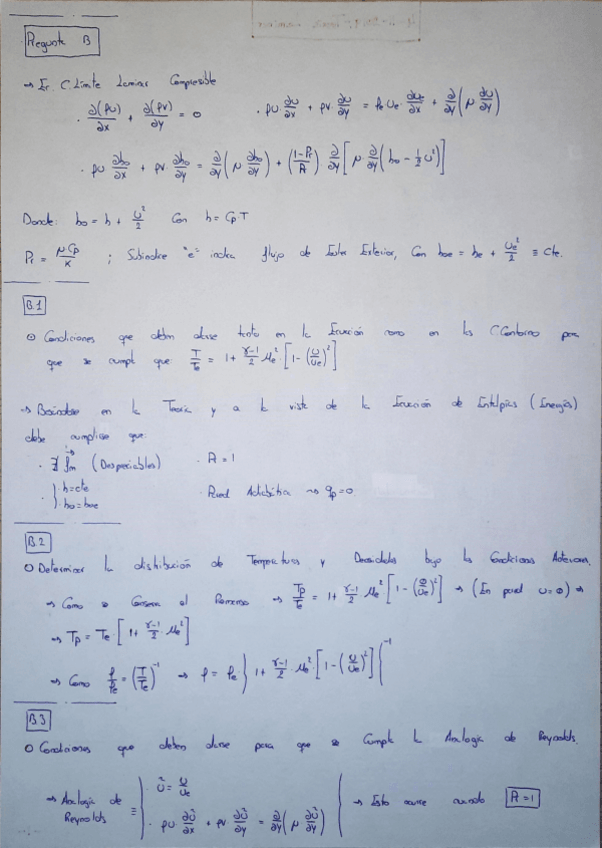 Pregunta B
→ Ec. C. Límite Laminar Compresible
· ∂(ρu)/∂x + ∂(ρv)/∂y = 0 · ρu·∂u/∂x + ρv·∂u/∂y = ρe Ue·∂ue/∂x + ∂/∂y(μ ∂u/∂y)
· ρu ∂ho/∂x + ρv ∂ho/∂y = ∂/∂y(μ ∂ho/∂y) + (1-Pr/Pr) ∂/∂y[μ·∂/∂y(ho - ½u²)]
Donde: ho = h + u²/2 Con h = Cp T
Pr = μ·Cp/K ; Subíndice "e" indica flujo de Euler Exterior, Con hoe = he + Ue²/2 ≡ Cte.
B.1
⊙ Condiciones que deben darse tanto en la Ecuación como en las C.Contorno para
que se cumpla que: T/Te = 1 + γ-1/2 Me²·[1 - (u/ue)²]
→ Basándose en la Teoría y a la vista de la Ecuación de Entalpías (Energías)
debe cumplirse que:
· ∄ fm (Despreciables) · Pr = 1
· } h = cte
ho = hoe · Pared Adiabática ⇝ qp = 0
B.2
⊙ Determinar la distribución de Temperaturas y Densidades bajo las Condiciones Anteriores.
→ Como se Conserva el → Tp/Te = 1 + γ-1/2 Me²[1 - (0/ue)²] → (En pared u = 0) →
→ Tp = Te·[1 + γ-1/2·Me²]
→ Como ρ/ρe = (T/Te)⁻¹ → ρ = ρe } 1 + γ-1/2·Me²·[1 - (u/ue)²] {⁻¹
B.3
⊙ Condiciones que deben darse para que se Cumpla la Analogía de Reynolds.
→ Analogía de Reynolds ≡ } û = u/ue
· ρu·∂û/∂x + ρv·∂û/∂y = ∂/∂y(μ ∂û/∂y) { → Esto ocurre cuando Pr = 1